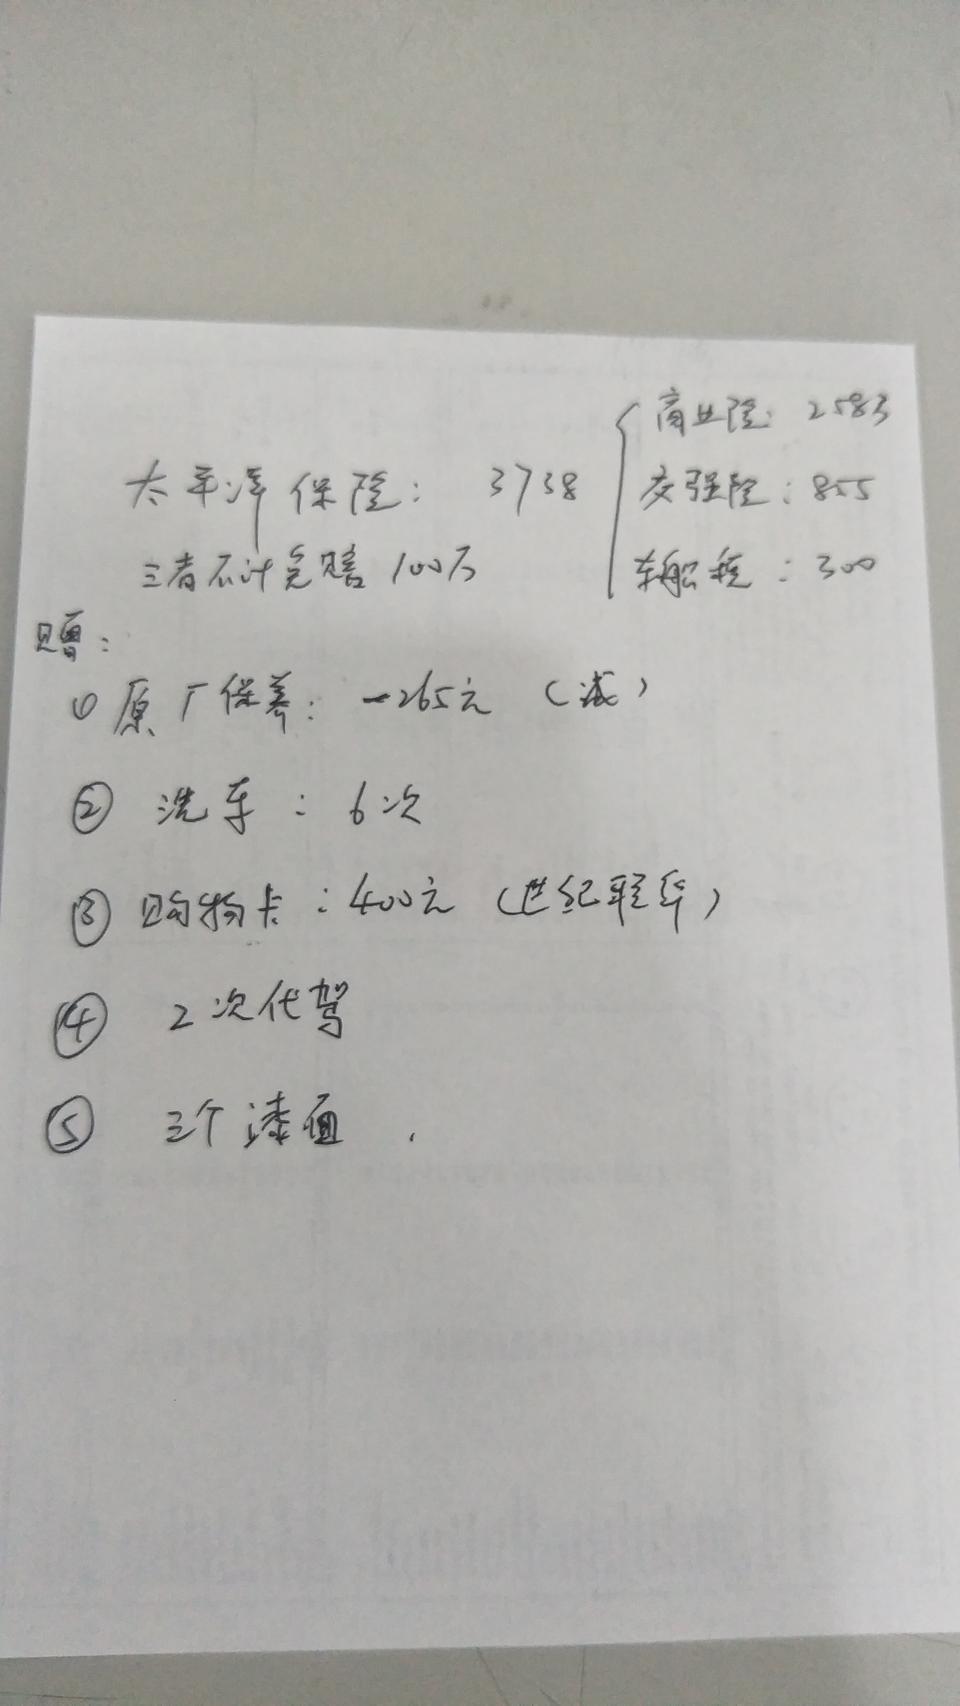 商业险：2583
太平洋保险：3738
交强险：855
三者不计免赔100万
车船税：300
赠：
① 原厂保养：-265元（减）
② 洗车：6次
③ 购物卡：400元（世纪联华）
④ 2次代驾
⑤ 三个漆面.